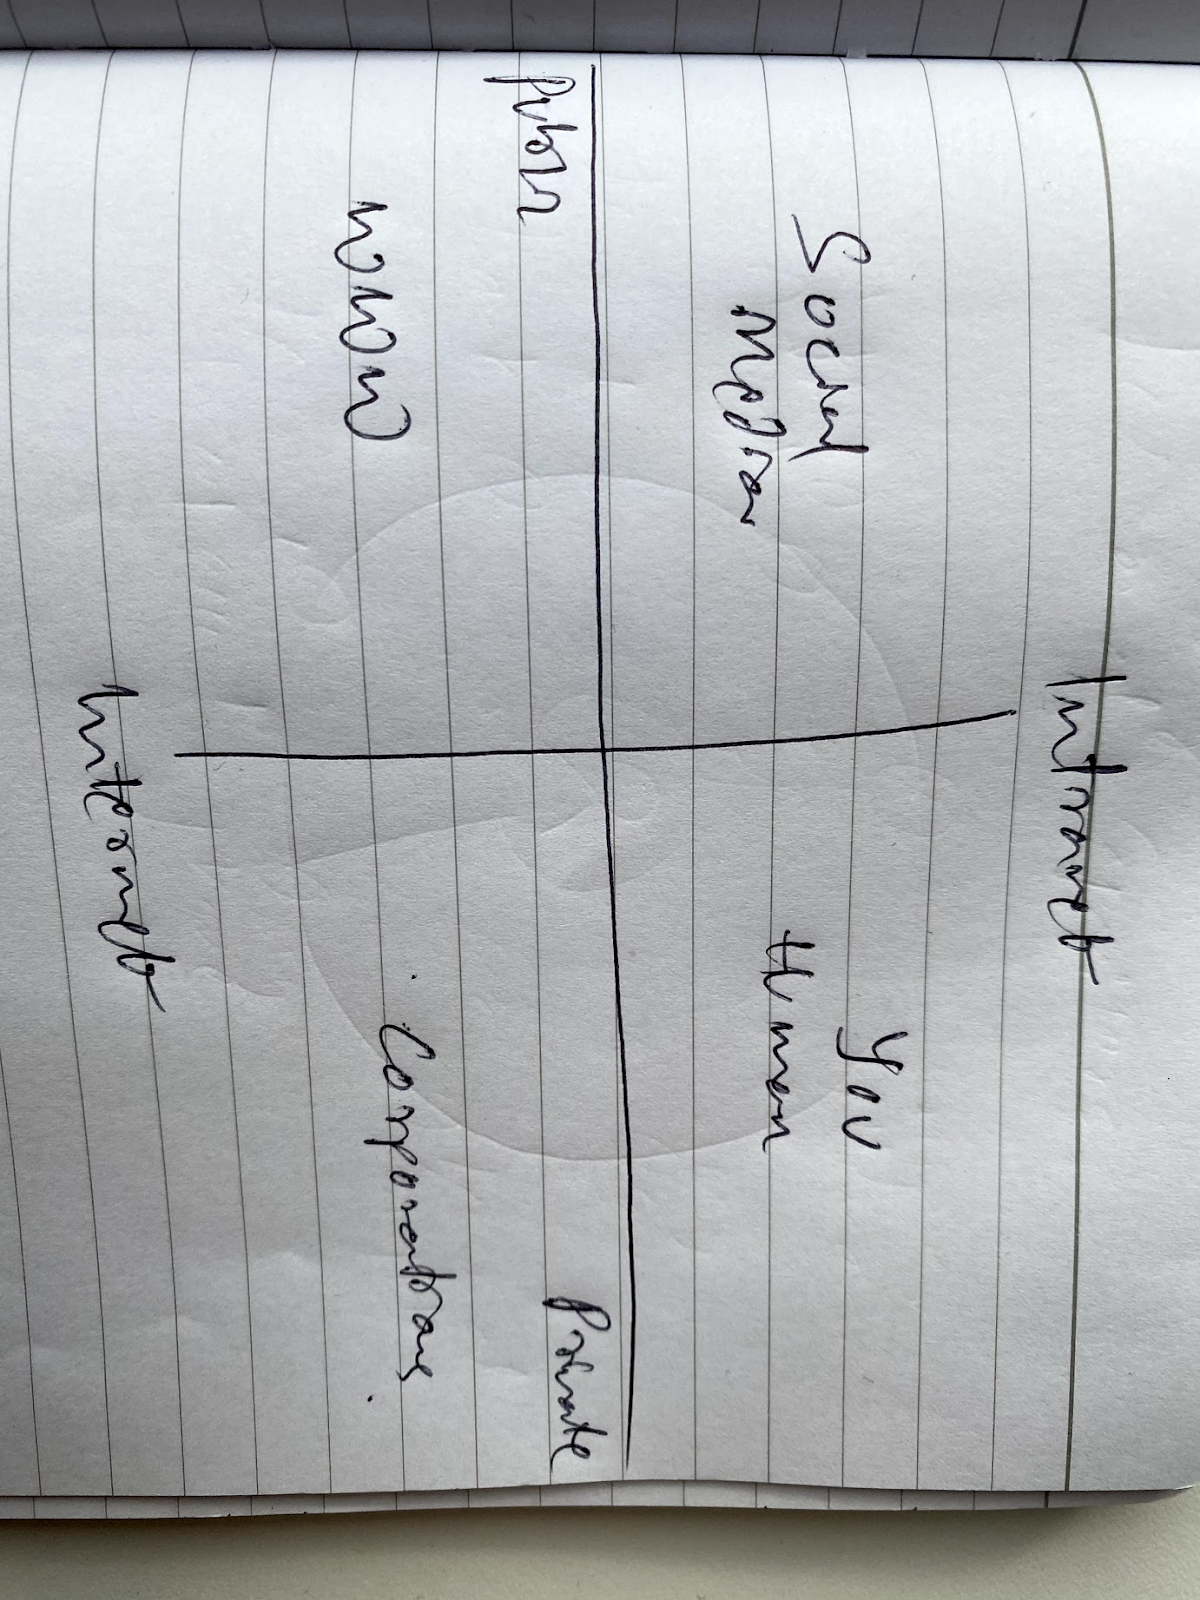 Intranet
Social
Media
You
Human
Public
Private
WWW
Corporations
Internet